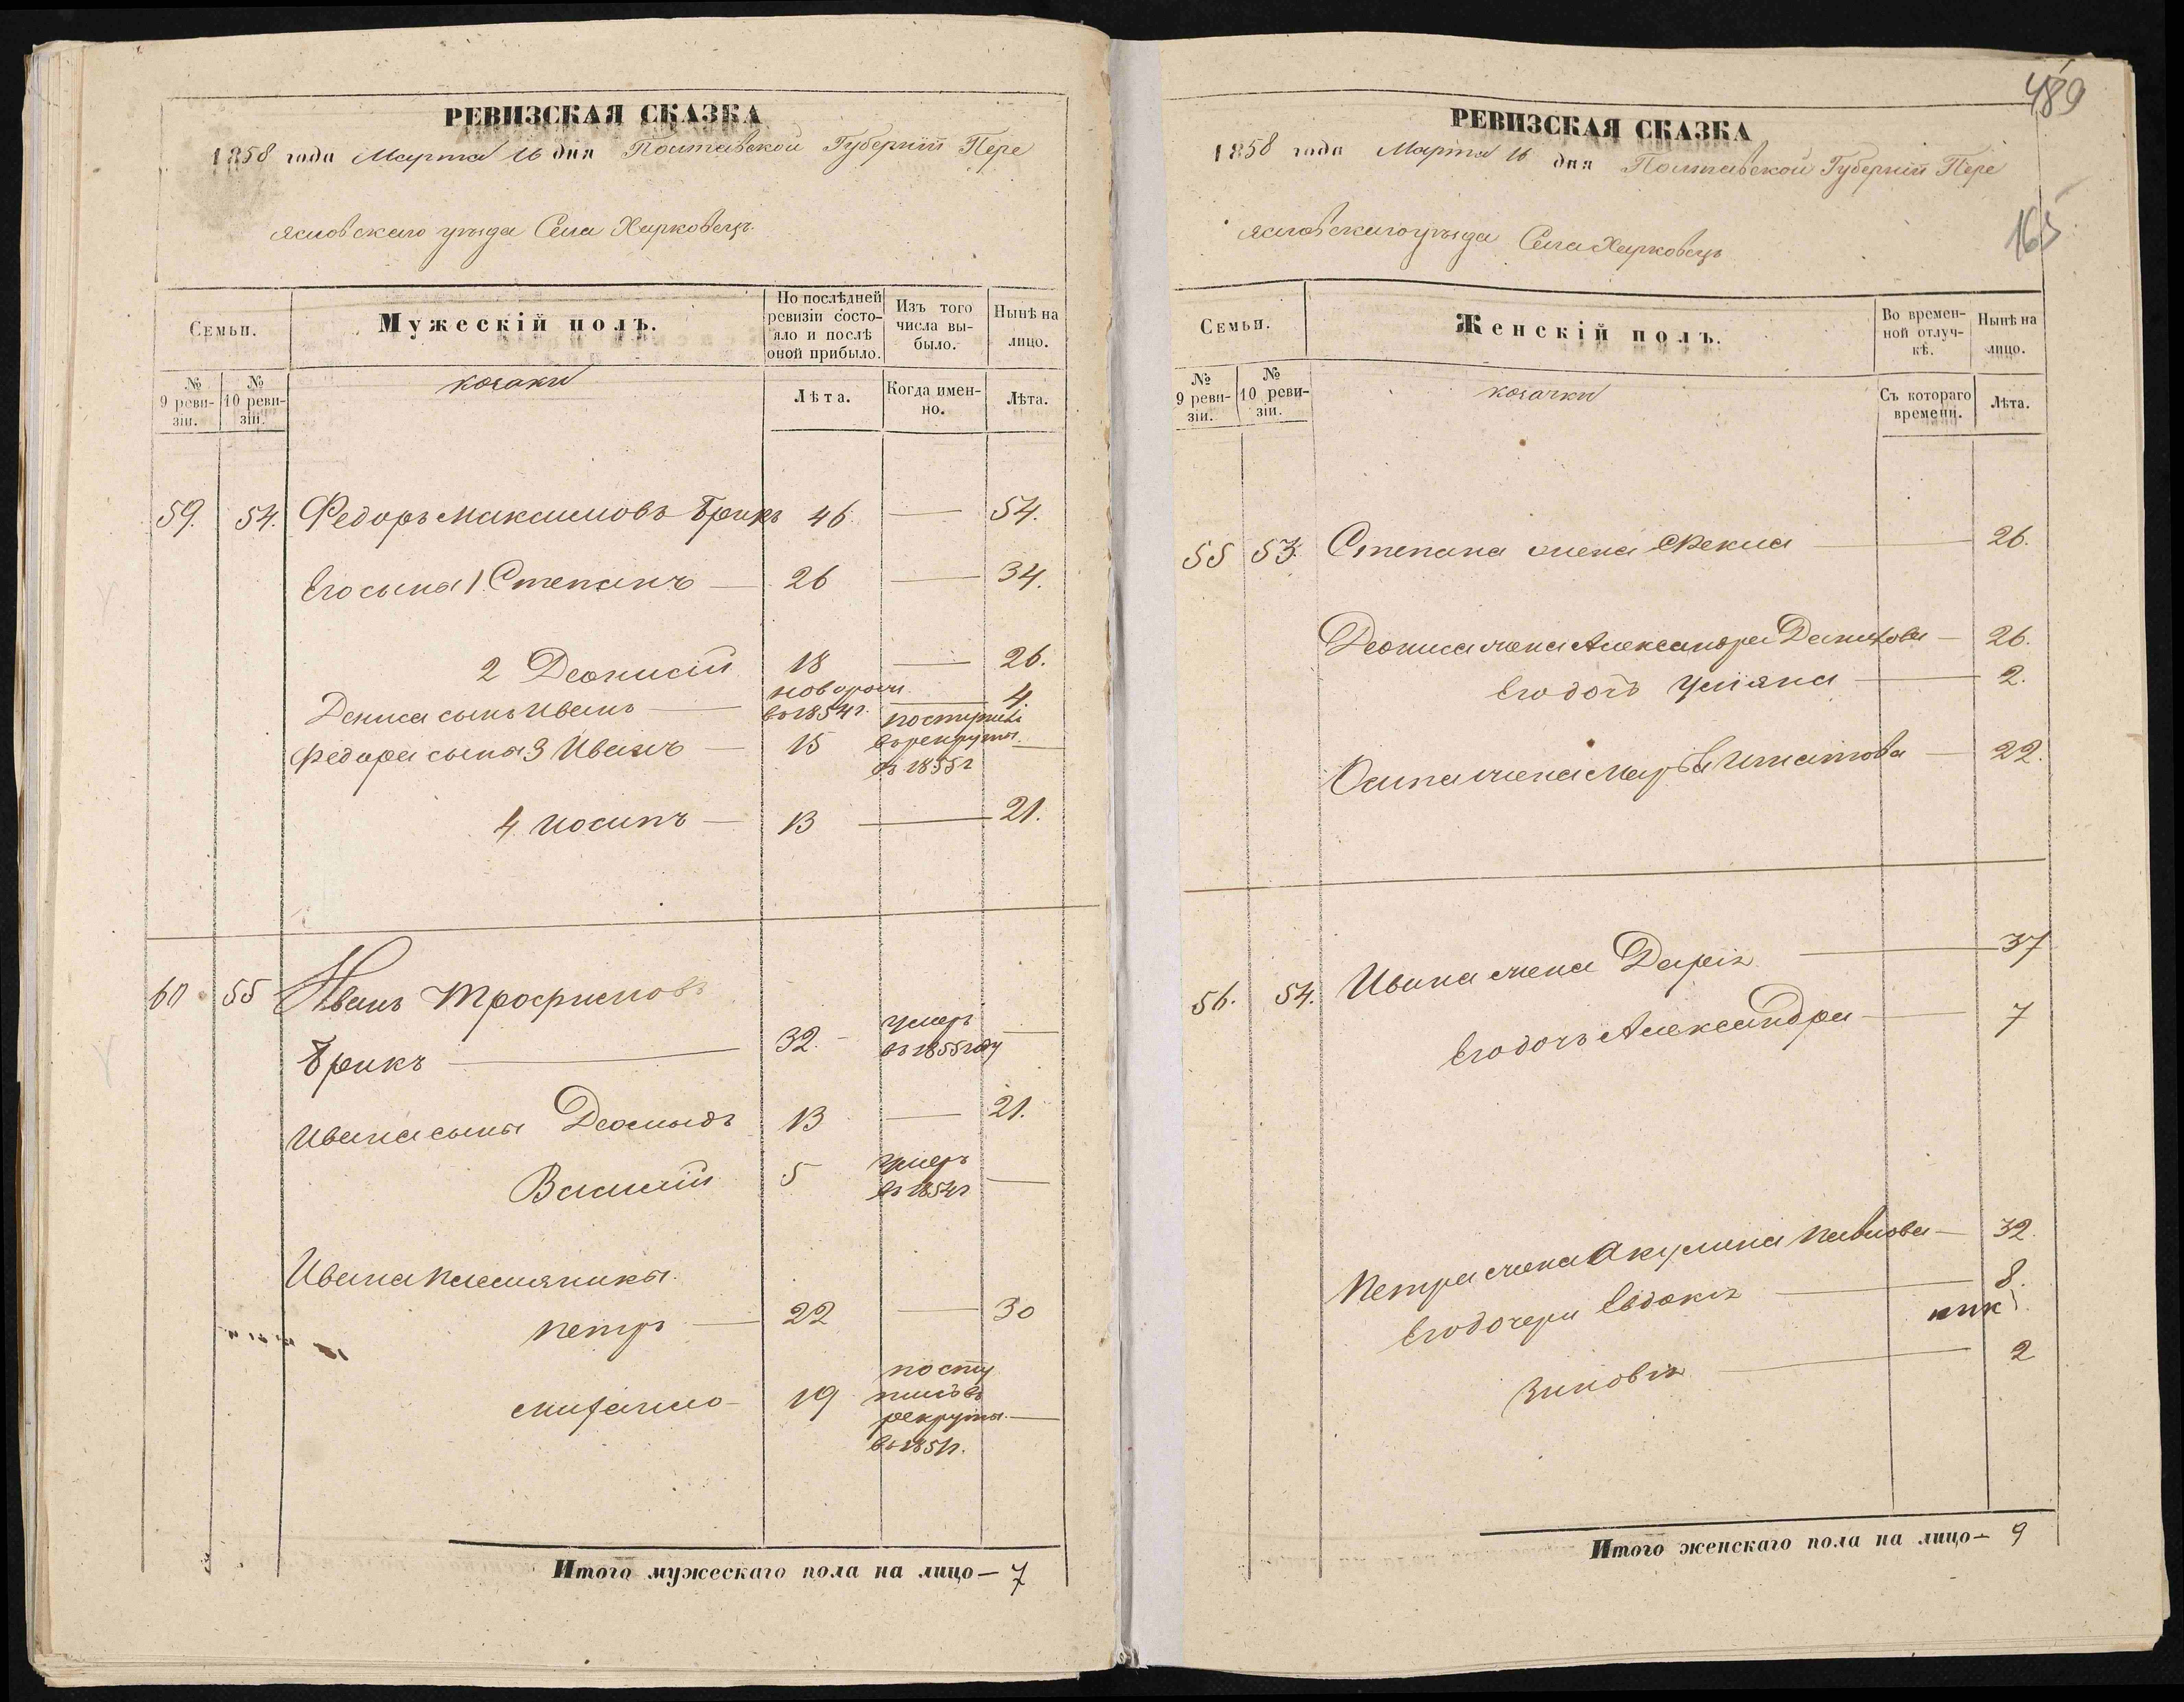 РЕВИЗСКАЯ СКАЗКА
1858 года Марта 16 дня Полтавской Губерніи Пере
яславскаго уѣзда Села Харковецъ.
Семьи.
Мужескій полъ.
По послѣдней ревизіи состояло и послѣ оной прибыло.
Изъ того числа выбыло.
Нынѣ на лицо.
№ 9 ревизіи.
№ 10 ревизіи.
козаки
Лѣта.
Когда именно.
Лѣта.
59. 54. Федоръ Максимовъ Брикъ 46 — 54.
Его сына 1 Степанъ — 26 — 34.
2 Деонисій 18 — 26.
Дениса сынъ Иванъ — новорож. въ 1854 г. — 4
Федора сына 3 Иванъ — 15 поступилъ въ рекруты въ 1855 г —
4 Иосипъ — 13 — 21.
60 55 Иванъ Трофимовъ
Брикъ — 32. умеръ въ 1855 году —
Ивана сыны Деомидъ 13 — 21.
Василій 5 умеръ въ 1854 г —
Ивана племянники.
Петръ — 22 — 30
Михайло — 19 поступилъ въ рекруты въ 1851 г. —
Итого мужескаго пола на лицо — 7
489
РЕВИЗСКАЯ СКАЗКА
1858 года Марта 16 дня Полтавской Губерніи Пере
яславскаго уѣзда Села Харковецъ
165
Семьи.
Женскій полъ.
Во временной отлучкѣ.
Нынѣ на лицо.
№ 9 ревизіи.
№ 10 ревизіи.
козачки
Съ котораго времени.
Лѣта.
55 53. Степана жена Фекла — 26.
Деониса жена Александра — 26.
Его дочь Уліяна — 2.
Осипа жена Марѳа Игнатова — 22.
56. 54. Ивана жена Дарія — 37
Его дочь Александра — 7
Петра жена Акулина Павлова — 32.
Его дочери Евдокія — 8.
Зиновія — 2
Итого женскаго пола на лицо — 9